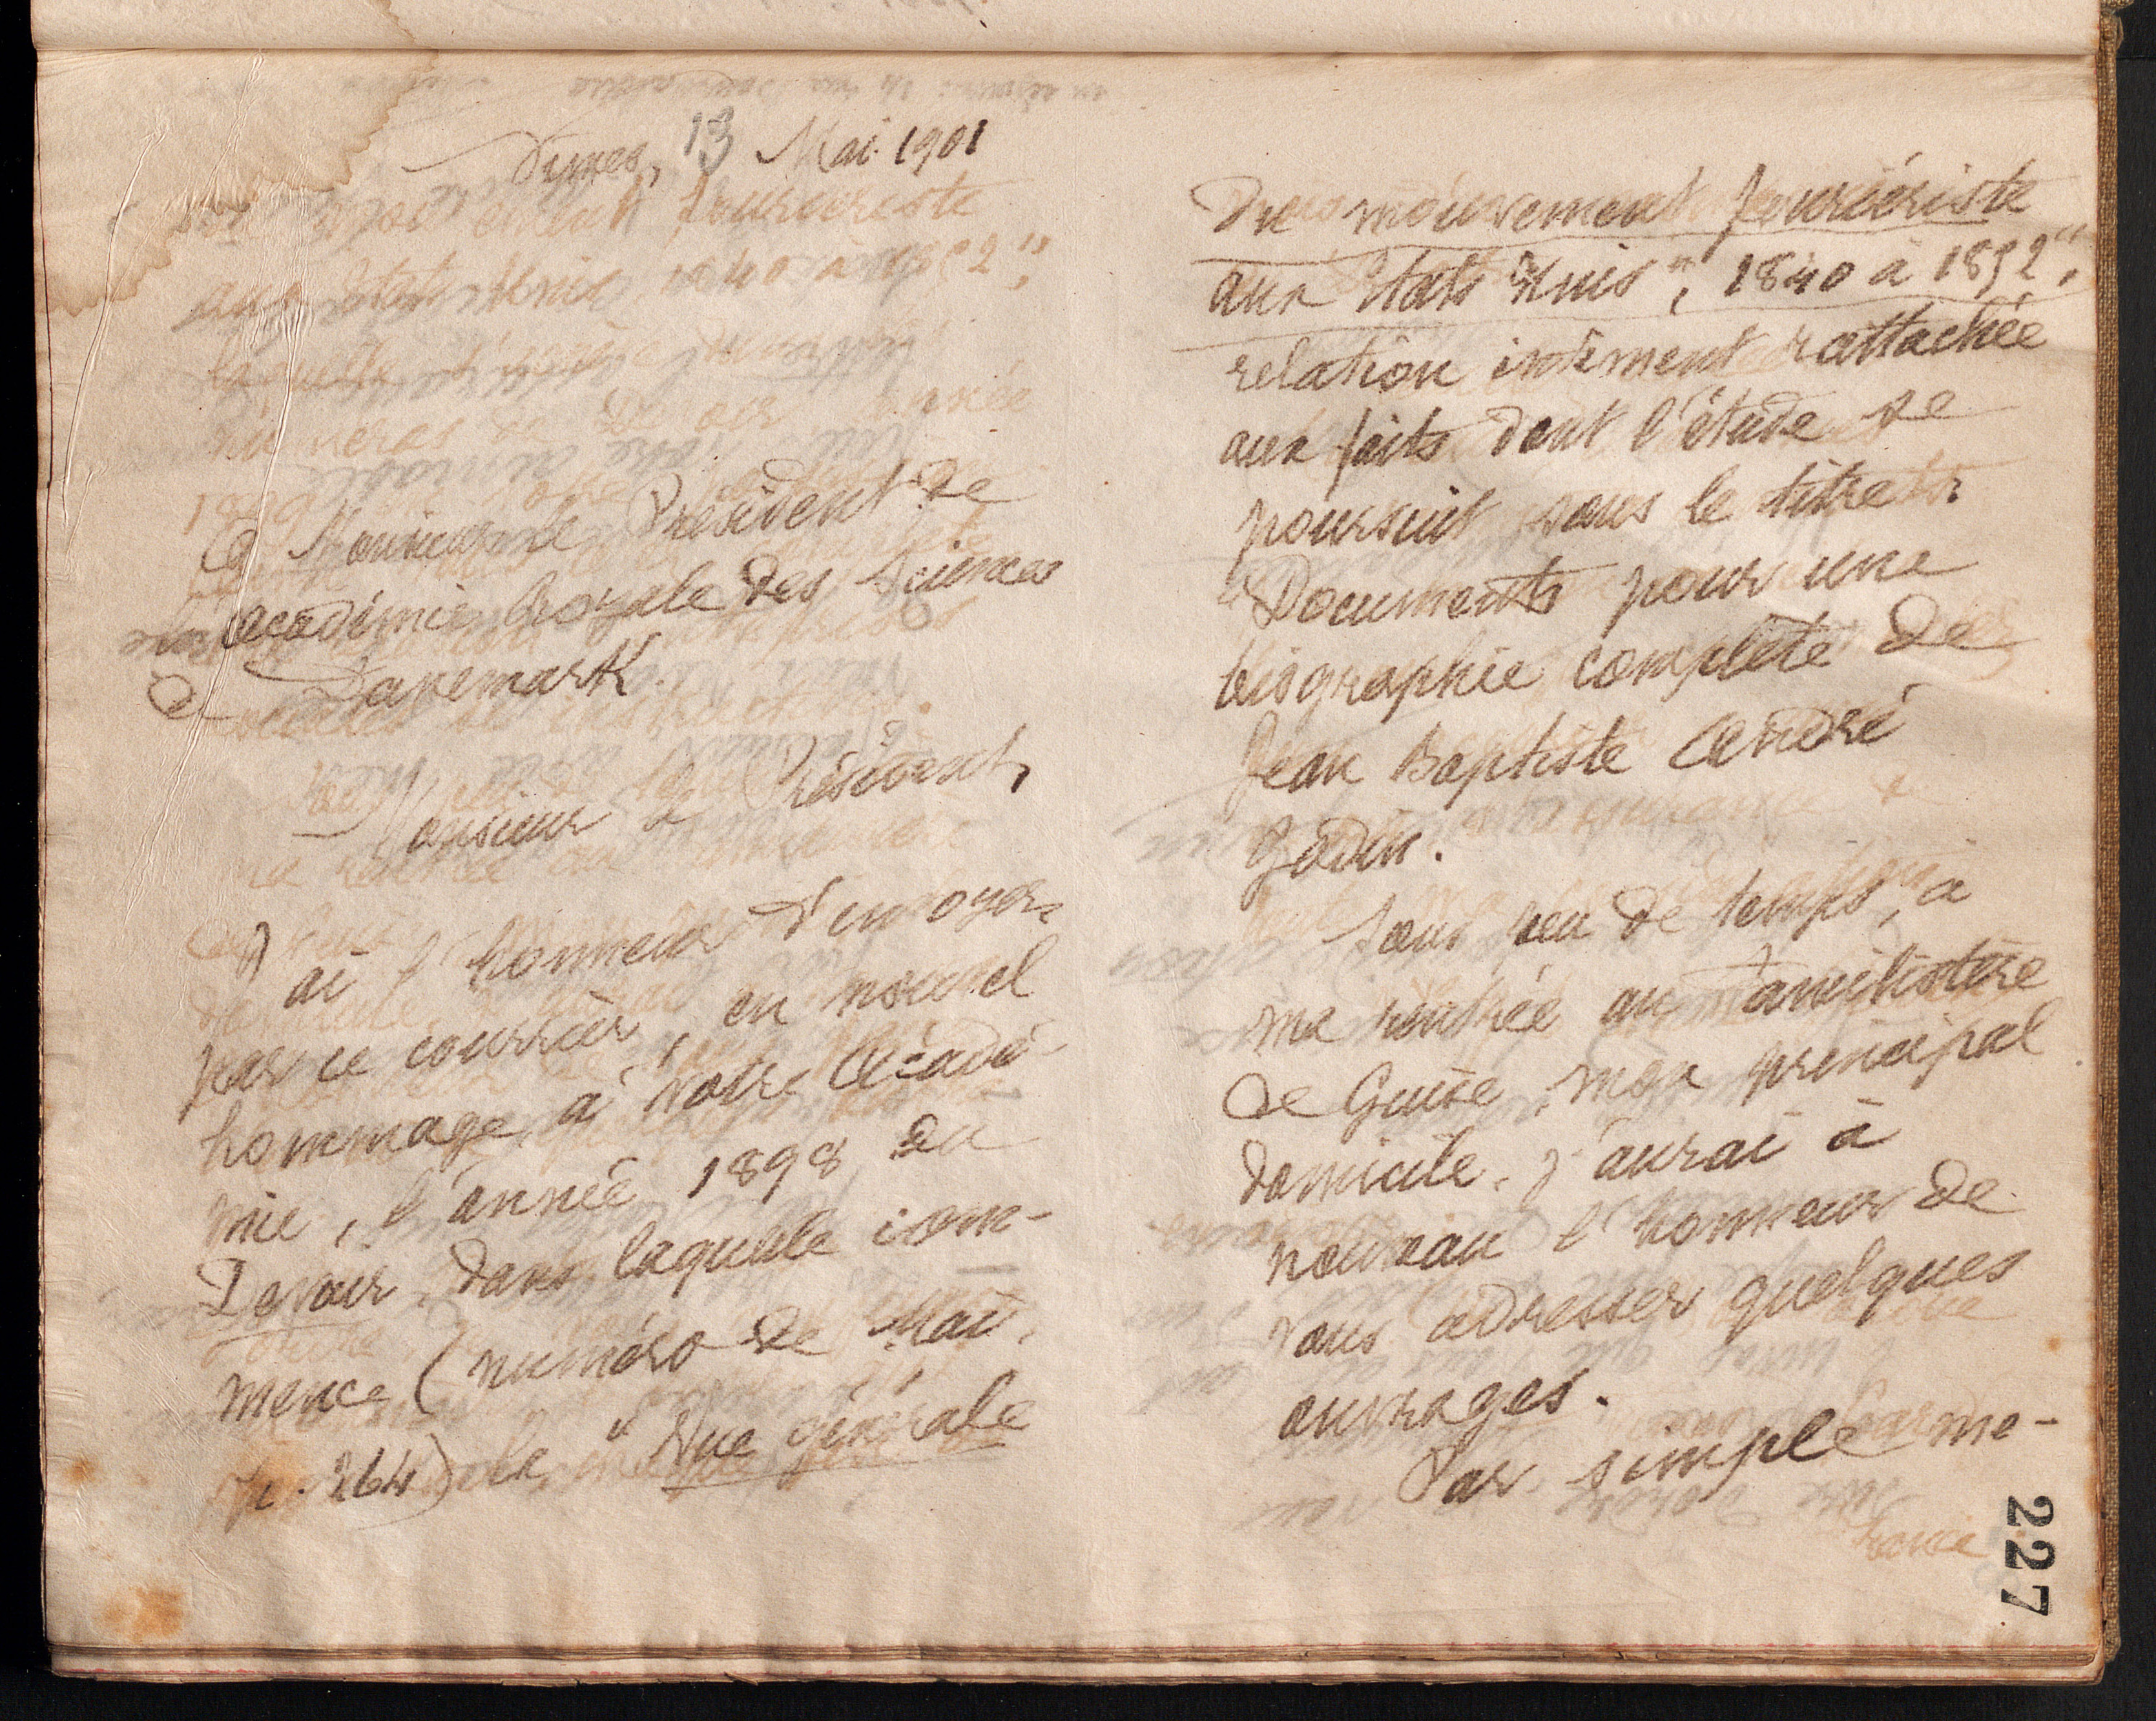 Nimes, 13 Mai 1901
A Monsieur le Président de
l'académie Royale des Sciences
de Danemark.
Monsieur le Président,
J'ai l'honneur d'envoyer
par ce courrier, en nouvel
hommage à votre Acadé-
mie, l'année 1898 du
Devoir, dans laquelle com-
mence (numéro de Mai,
p. 264) la "Vue générale
du mouvement fouriériste
aux Etats Unis", 1840 à 1852",
relation intimement rattachée
aux faits dont l'étude se
poursuit sous le titre
"Documents pour une
biographie complète de
Jean Baptiste André
Godin.
Sous peu de temps, à
ma rentrée au Familistère
de Guise, mon principal
domicile, j'aurai à
nouveau l'honneur de
vous adresser quelques
ouvrages.
Par simple me-
227